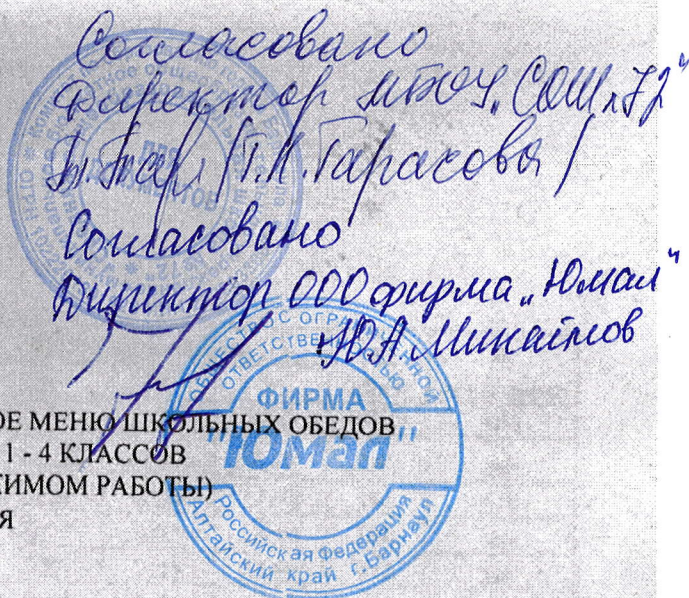 Согласовано
Директор МБОУ „СОШ №72"
/Т.Н. Тарасова/
Согласовано
Директор ООО фирма „Юмал"
Ю.А Минаилов
ДЛЯ
ДОКУМЕНТОВ
ОБЩЕСТВО С ОГРАНИЧЕННОЙ
ОТВЕТСТВЕННОСТЬЮ
ФИРМА
"Юмал"
Российская Федерация
Алтайский край г. Барнаул
ОЕ МЕНЮ ШКОЛЬНЫХ ОБЕДОВ
1 - 4 КЛАССОВ
ЖИМОМ РАБОТЫ)
Я